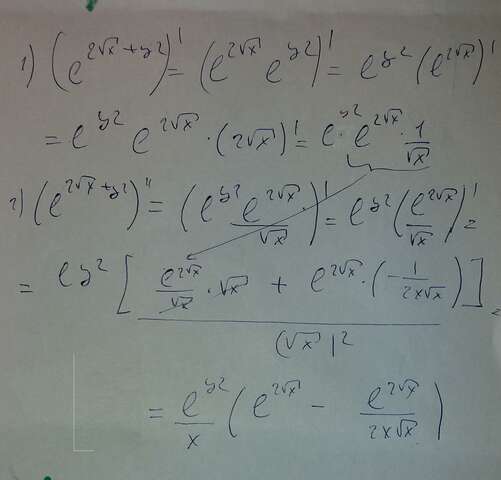 1) (e^{2√x + y^2})' = (e^{2√x} e^{y^2})' = e^{y^2} (e^{2√x})'
= e^{y^2} e^{2√x} · (2√x)' = e^{y^2} e^{2√x} · 1/√x
2) (e^{2√x + y^2})'' = (e^{y^2} e^{2√x}/√x)' = e^{y^2} (e^{2√x}/√x)' =
= e^{y^2} [e^{2√x}/√x · √x + e^{2√x} · (-1/(2x√x))]/(√x)^2 =
= e^{y^2}/x (e^{2√x} - e^{2√x}/(2x√x))